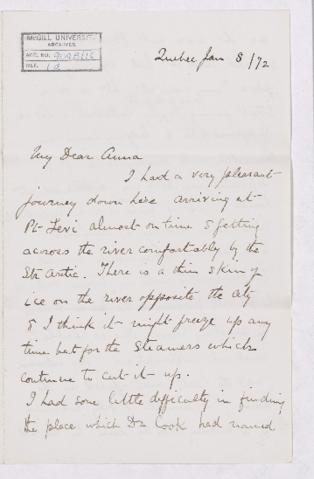 McGILL UNIVERSITY
ARCHIVES
ACC. NO.
REF.
Quebec Jan 8/72
My Dear Anna
I had a very pleasant
journey down here arriving at
Pt Levi almost on time & getting
across the river comfortably by the
Str Arctic. There is a thin skin of
ice on the river opposite the city
& I think it might freeze up any
time but for the Steamers which
continue to cut it up.
I had some little difficulty in finding
the place which Dr Cook had named